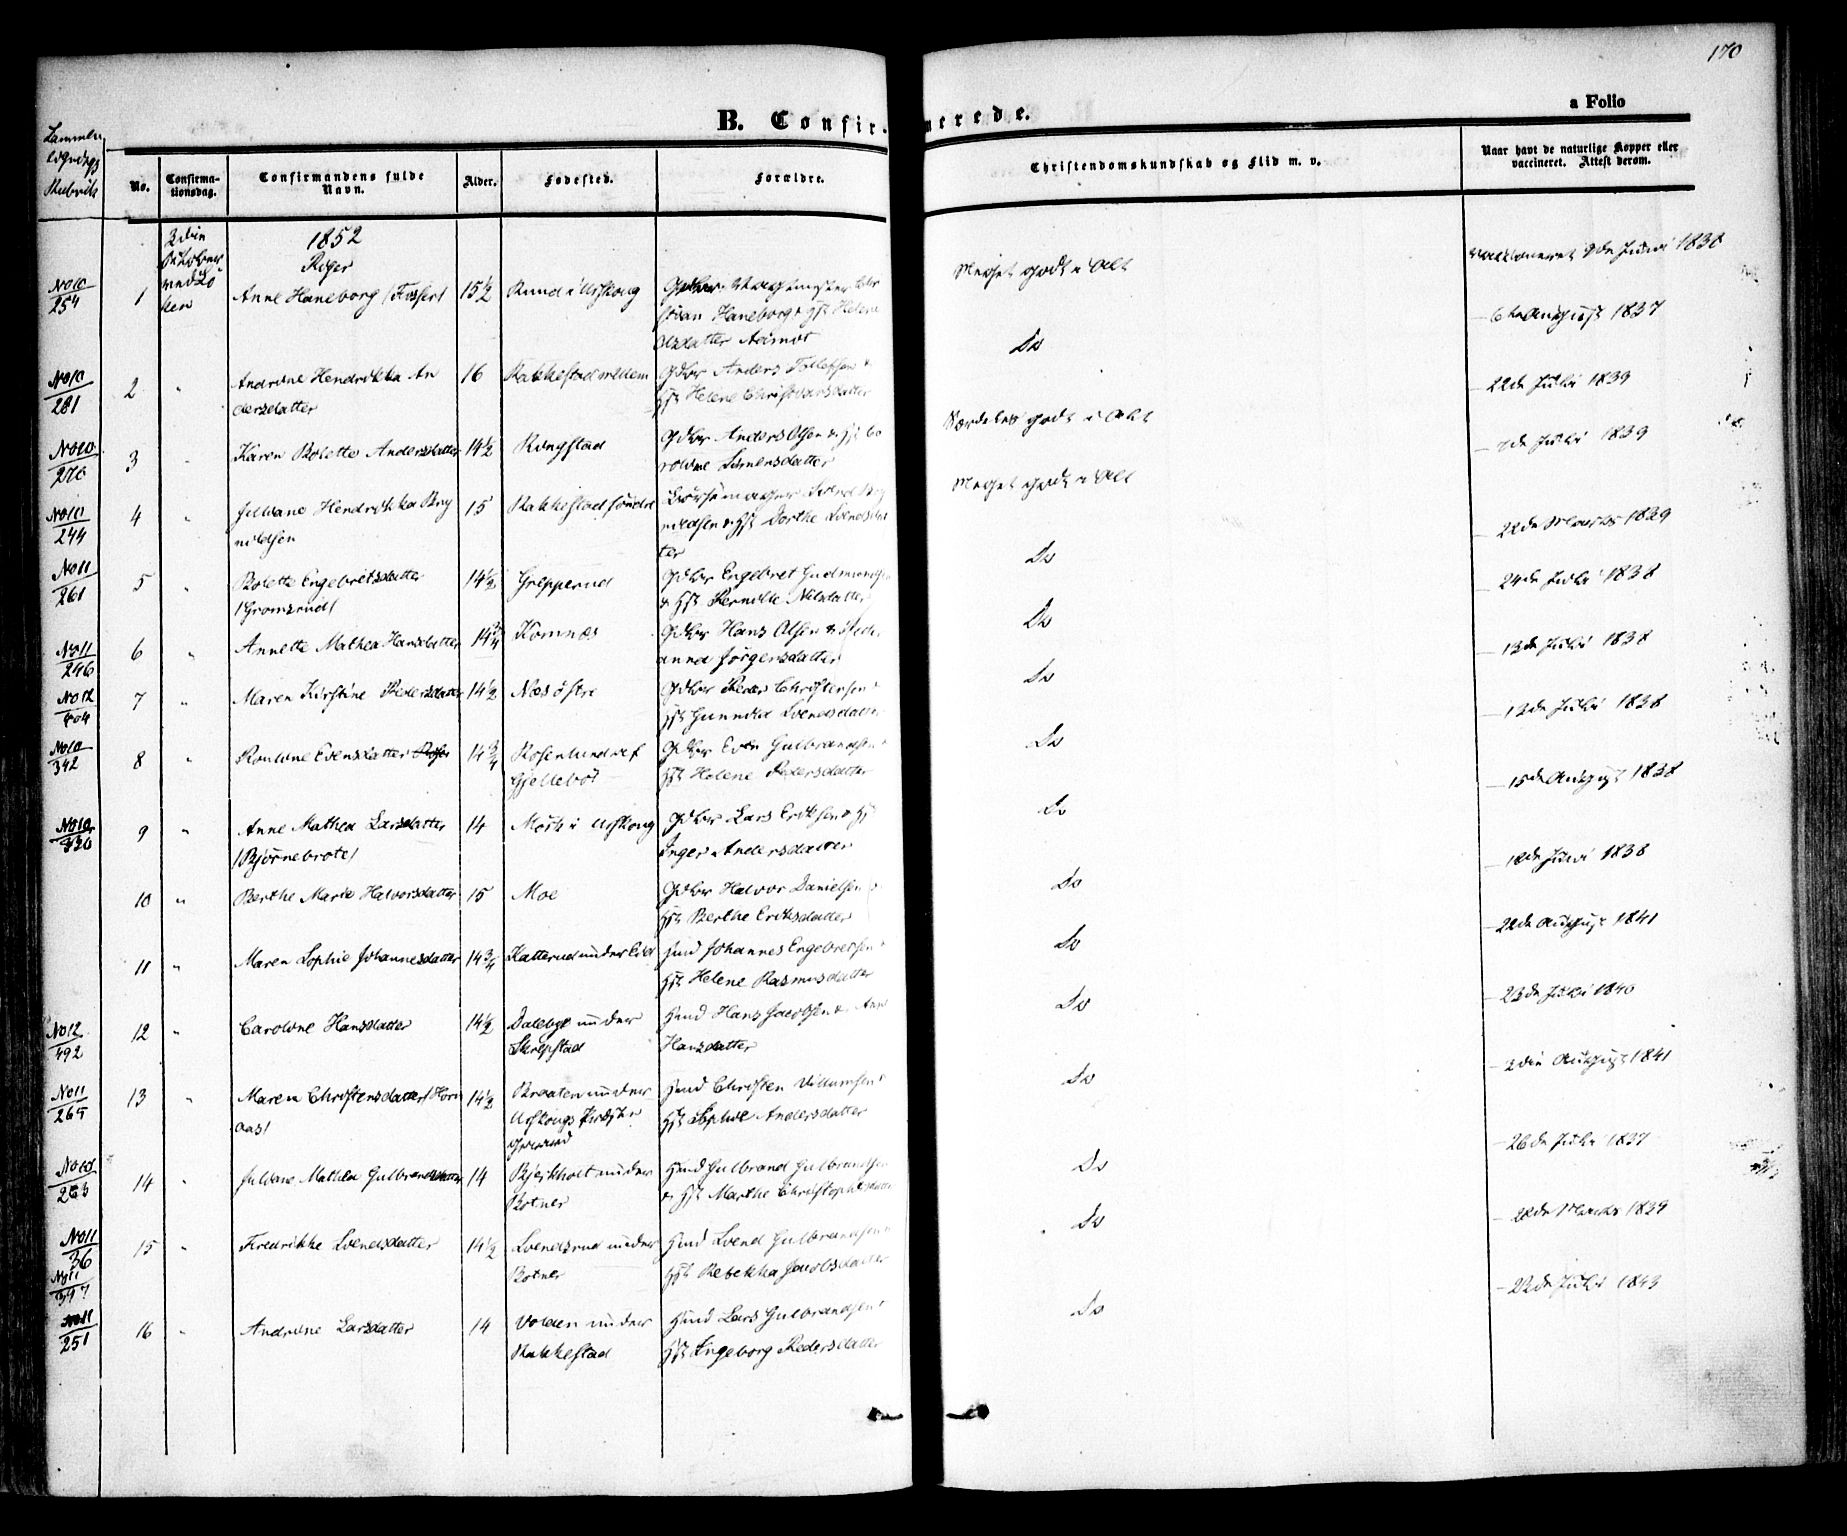 170
B. Confirmerede.
a Folio
No.
Confirmationsdag.
Confirmandens fulde Navn.
Alder.
Fødested.
Forældre.
Christendomskundskab og Flid m. v.
Naar havt de naturlige Kopper eller vaccineret. Attest derom.
1852
Piger
No 10/254 1 Anne Haneborg /Fosser/ 15½ Rund i Urskoug
stian Haneborg & Helene
Olsdatter Aarnot
Meget godt i Alt
vaccineret 9de Juni 1838
No 10/281 2 " Andrine Hendrikka An
dersdatter 16 Rakkestad mellem Gdbr Anders
Helene Christiansdatter
Do
6te August 1837
No 10/270 3 " Karen Bolette Andersdatter 14½ Ringstad Gdbr Anders Olsen & Hst Ca
roline Simensdatter
Særdeles godt i Alt
22de Juli 1839
No 10/244 4 " Juliane Hendrikka Bry
nildsen 15 Rakkestad søndre
Dorthe Svendsdat
ter
Meget godt i Alt
7de Juli 1839
No 11/261 5 " Bolette Engebretsdatter
/Gromsrud/ 14½ Grepperud Gdbr Engebret Gudmundsen
& Hst Pernille Nilsdatter
Do
22de Marts 1839
No 11/246 6 " Annette Mathea Hansdatter 14¾ Komnæs Gdbr Hans Olsen &
anna Jørgensdatter
Do
24de Juli 1838
No 12 7 " Maren Kirstine Pedersdatter 14½ Næs østre Gdbr Peder Christensen &
Hst Gunnild Svendsdatter
Do
13de Juli 1838
No 10/342 8 " Pauline Evensdatter 14¾ Rosenlund af
Gjellebøl Gdbr Even Gulbrandsen &
Hst Helene Pedersdatter
Do
12de Juli 1838
No 10 9 " Anne Mathea Larsdatter
/Bjørnebrote/ 14 Mørk i Urskoug Gdbr Lars Eriksen & Hst
Inger Andersdatter
Do
15de August 1838
10 " Berthe Marie Halvorsdatter 15 Moe Gdbr Halvor Danielsen
Hst Berthe Eriksdatter
Do
18de Juni 1838
11 " Maren Sophie Johannesdatter 14¾ Katterud under Eid Hmd Johannes Engebretsen &
Hst Helene Rasmusdatter
Do
22de August 1841
No 12/492 12 " Caroline Hansdatter 14½ under
Skrepstad Hmd Hans Jacobsen & Anne
Hansdatter
Do
23de Juli 1840
No 11/265 13 " Maren Christensdatter /Horn
aas/ 14½ Braaten under
Urskougs Præste
gaard Hmd Christen Villumsen &
Hst Sophie Andersdatter
Do
2den August 1841
No 10/263 14 " Juliane Mathea Gulbrandsdatter 14 Bjerkholt under
Botner Hmd Gulbrand Gulbrandsen
& Hst Marthe Christophersdatter
Do
26de Juli 1837
No 11/36 No 11/347 15 " Fredrikke Svendsdatter 14½ Svendsrud under
Botner Hmd Svend Gulbrandsen &
Hst Rebekka Jacobsdatter
Do
22de Marts 1839
No 11/251 16 " Andrine Larsdatter 14 Volden under
Rakkestad Hmd Lars Gulbrandsen &
Hst Ingeborg Pedersdatter
Do
22de Juli 1843